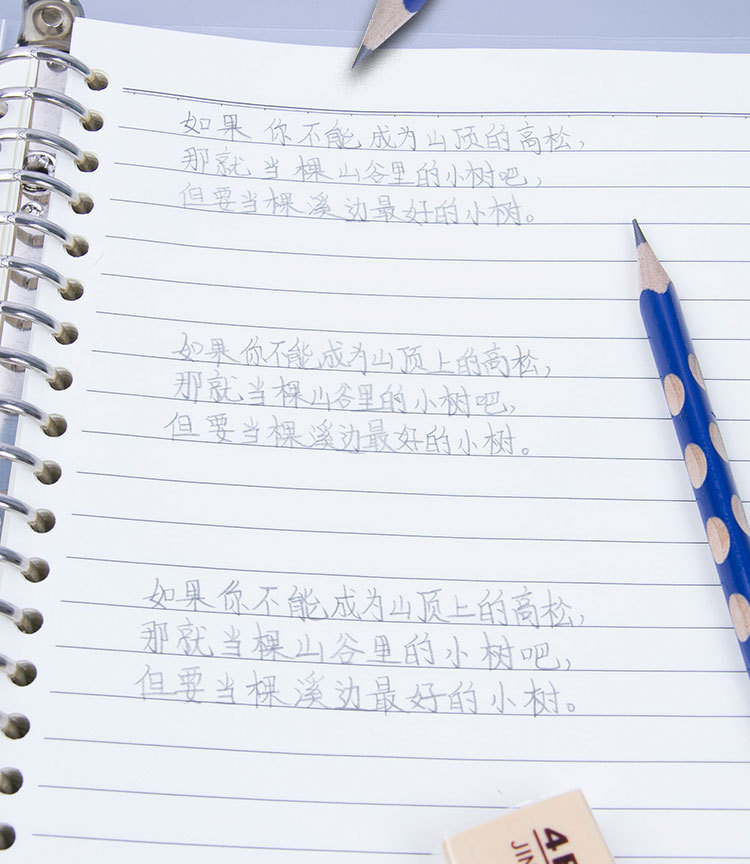 如果你不能成为山顶的高松,
那就当棵山谷里的小树吧,
但要当棵溪边最好的小树。
如果你不能成为山顶上的高松,
那就当棵山谷里的小树吧,
但要当棵溪边最好的小树。
如果你不能成为山顶上的高松,
那就当棵山谷里的小树吧,
但要当棵溪边最好的小树。